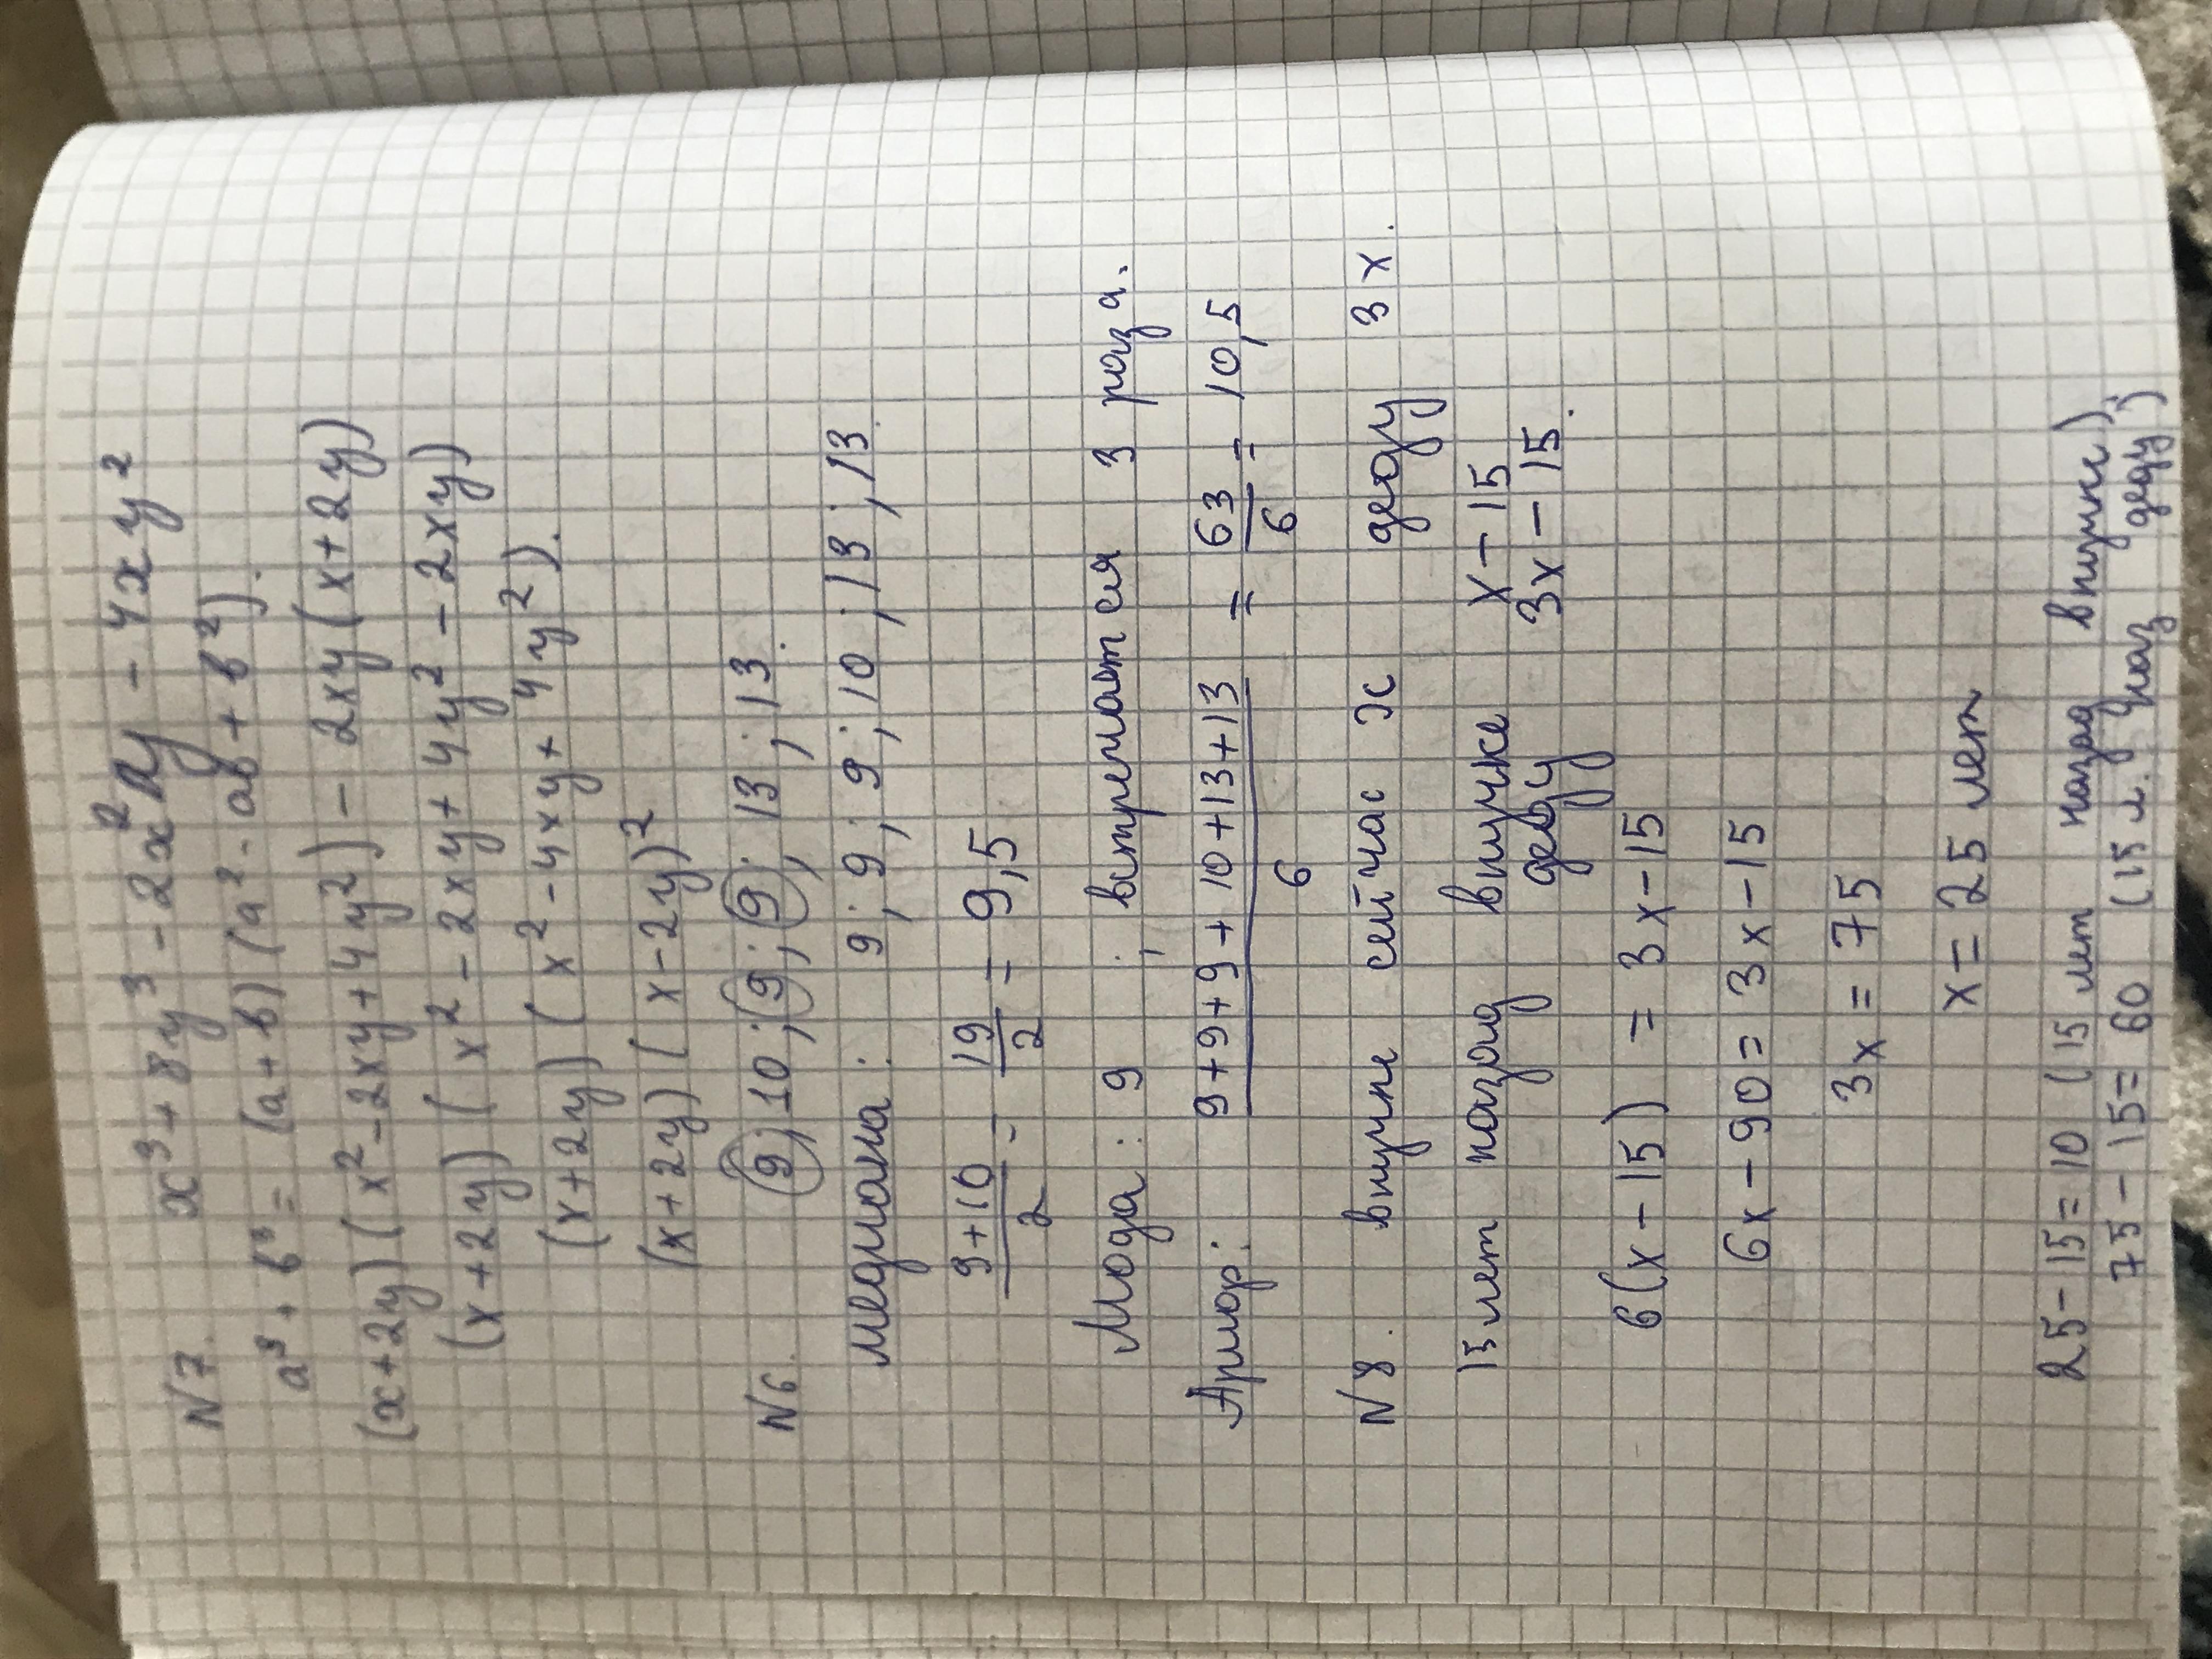 N7. x³ + 8y³ - 2x²y - 4xy²
a³ + b³ = (a + b)(a² - ab + b²).
(x+2y)(x² - 2xy + 4y²) - 2xy(x+2y)
(x+2y)(x² - 2xy + 4y² - 2xy)
(x+2y)(x² - 4xy + 4y²).
(x+2y)(x-2y)²
N6. 9; 10; 9; 9; 13; 13.
медиана: 9; 9; 9; 10; 13; 13.
9+10/2 = 19/2 = 9,5
Мода: 9; встречается 3 раза.
Армор: 9+9+9+10+13+13/6 = 63/6 = 10,5
N8. внучке сейчас x деду 3x.
15 лет назад внучке x-15
деду 3x-15.
6(x-15) = 3x-15
6x-90 = 3x-15
3x = 75
x = 25 лет
25-15=10 (15 лет назад внучке);
75-15=60 (15 л. назад деду)